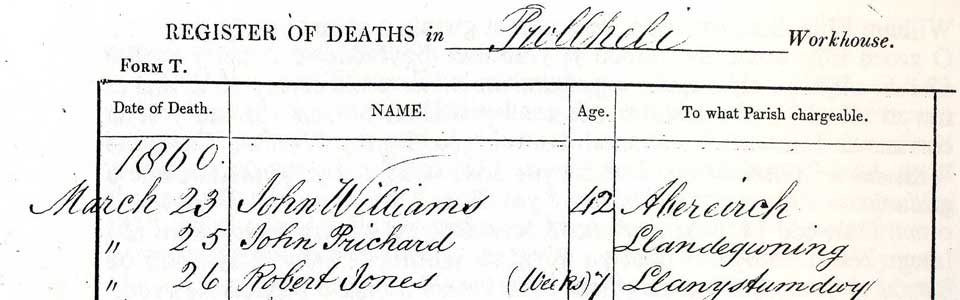 REGISTER OF DEATHS in Pwllheli Workhouse.
FORM T.
Date of Death. NAME. Age. To what Parish chargeable.
1860.
March 23 John Williams 42 Abereirch
" 25 John Prichard Llandegwning
" 26 Robert Jones (Weeks) 7 Llanystumdwy